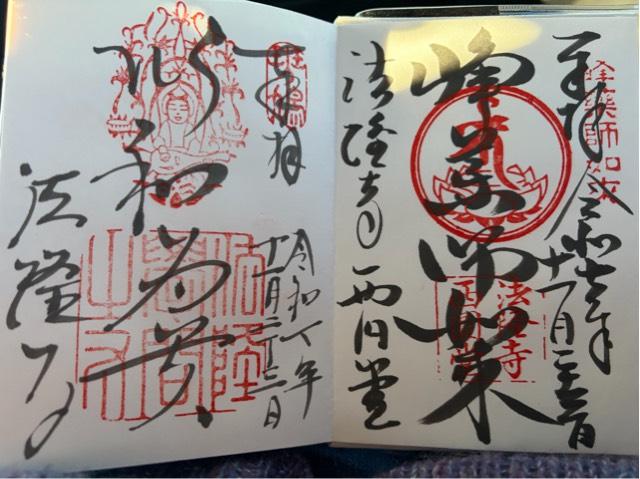 峰薬師如来
奉拝 令和七年十一月二十三日
峰薬師如来
法隆寺 西円堂
法隆寺
西円堂
斑鳩
奉拝
令和七年
十一月二十三日
以和為貴
法隆寺